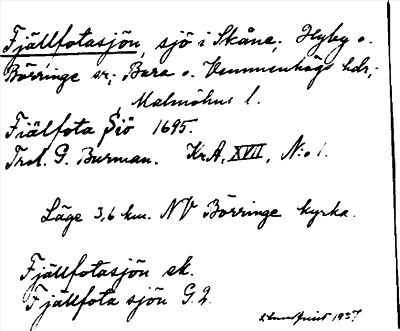 Fjällfotasjön, sjö i Skåne; Hyby o.
Börringe sr; Bara o. Vemmenhögs hdr;
Malmöhus l.
Fiälfota Siö 1695.
Trol. G. Burman. KrA, XVII, N:o 1.
Läge 3,6 km. NV Börringe kyrka.
Fjällfotasjön ek.
Fjällfota sjön G.2.